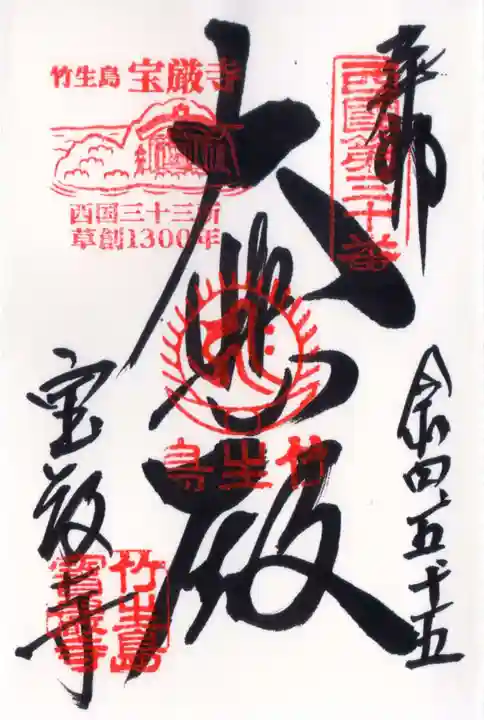 奉拝
西国第三十番
大悲殿
令四、五、十五
竹生島 宝厳寺
西国三十三所
草創1300年
竹生島
宝厳寺
竹生島
寳厳寺